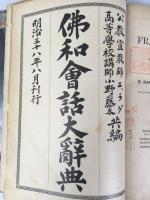 公教宣教師エ、ラゲ
高等學校講師小野藤太 共編
佛和會話大辭典
明治三十八年八月刊行
FRA